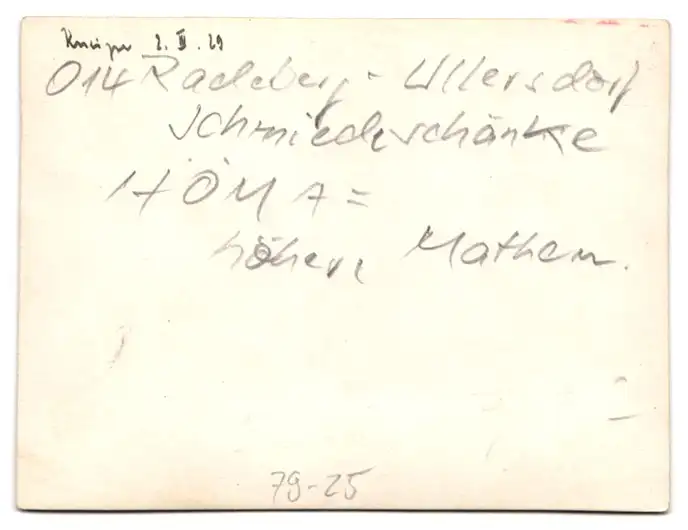 Kneipe 2. III. 29
014 Radeberg - Ullersdorf
Schmiedeschänke
HÖMA =
höhere Mathem.
79-25